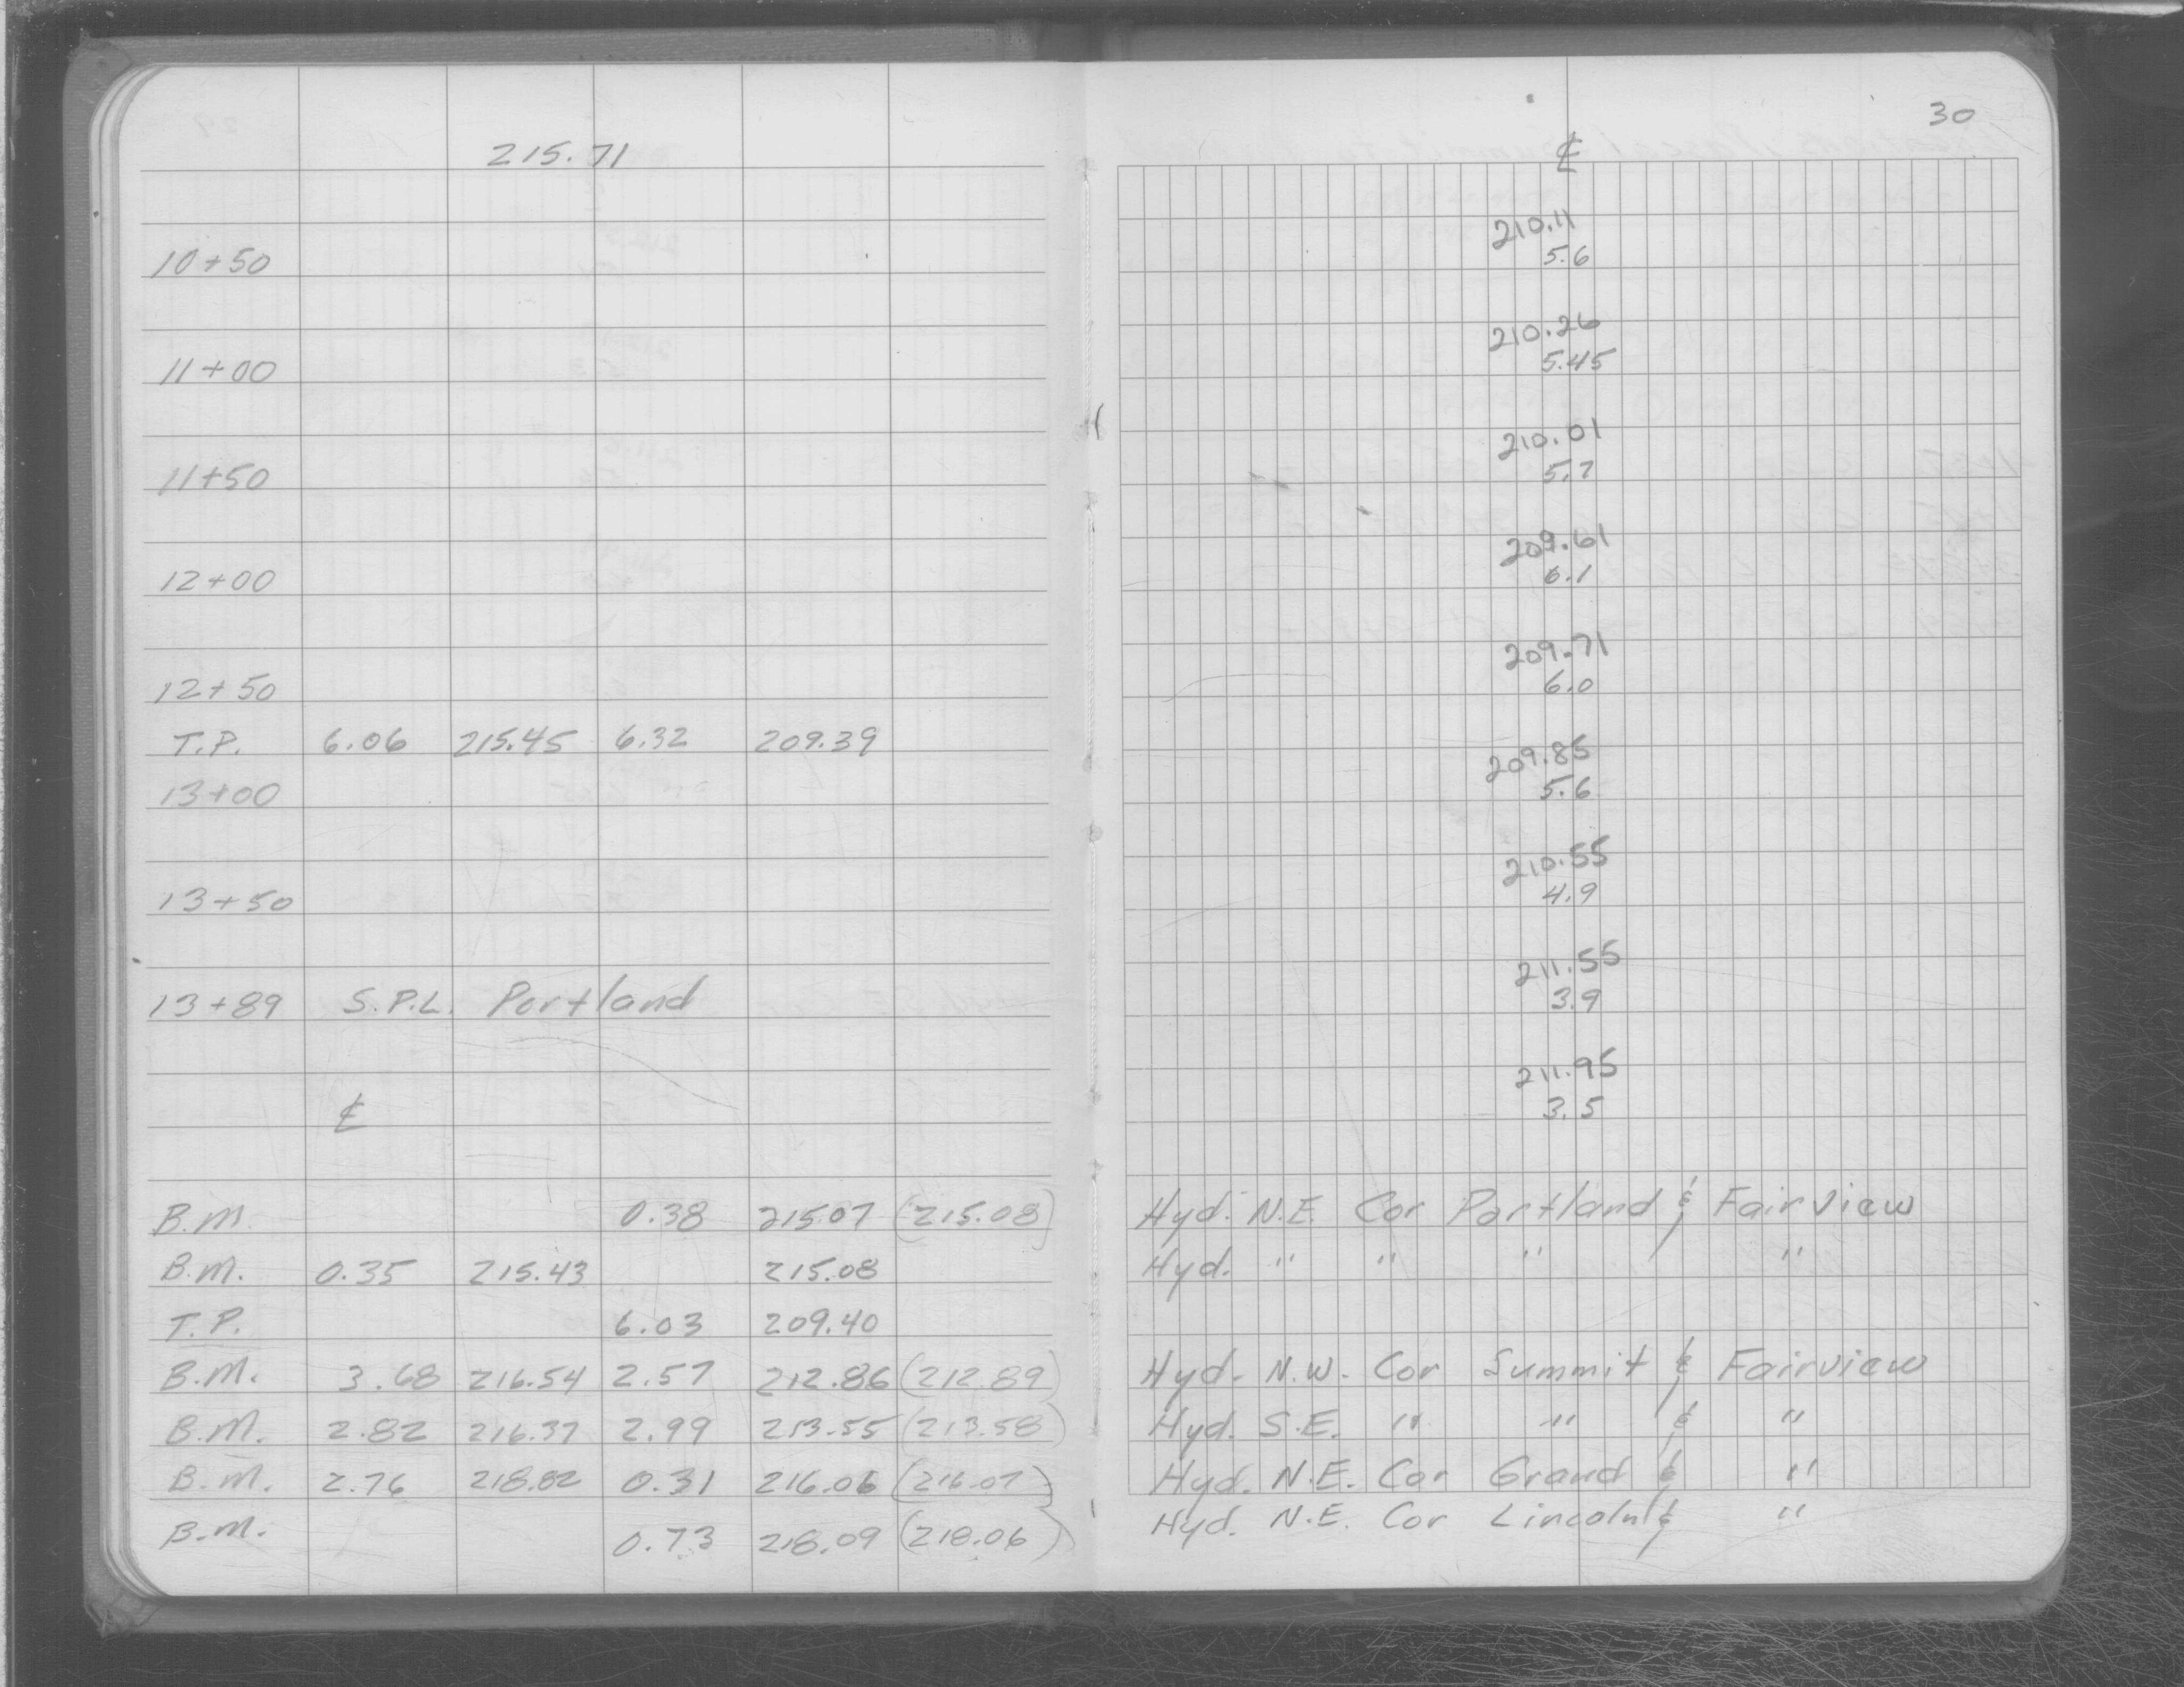 30
215.71 ℄
210.11
10+50 5.6
210.26
11+00 5.45
210.01
11+50 5.7
209.61
12+00 6.1
209.71
12+50 6.0
T.P. 6.06 215.45 6.32 209.39
209.85
13+00 5.6
210.55
13+50 4.9
211.55
13+89 S.P.L. Portland 3.9
211.95
℄ 3.5
B.M. 0.38 215.07 (215.08) Hyd. N.E. Cor Portland & Fairview
B.M. 0.35 215.43 215.08 Hyd. " " " "
T.P. 6.03 209.40
B.M. 3.68 216.54 2.57 212.86 (212.89) Hyd. N.W. Cor Summit & Fairview
B.M. 2.82 216.37 2.99 213.55 (213.58) Hyd. S.E. " " & "
B.M. 2.76 218.82 0.31 216.06 (216.07) Hyd. N.E. Cor Grand & "
B.M. 0.73 218.09 (218.06) Hyd. N.E. Cor Lincoln & "